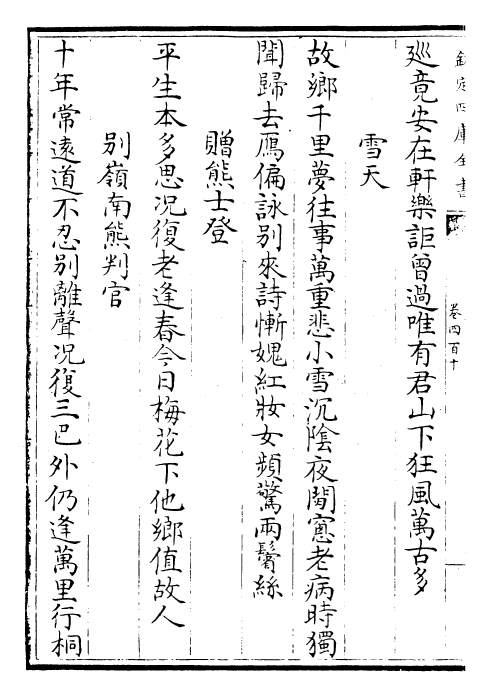 欽定四庫全書
卷四百十
廵竟安在軒樂詎曾過唯有君山下狂風萬古多
雪天
故鄉千里夢往事萬重悲小雪沉陰夜閒窓老病時獨
聞歸去鴈偏詠别來詩慚媿紅妝女頻驚兩鬢絲
贈熊士登
平生本多思况復老逢春今日梅花下他鄉值故人
别嶺南熊判官
十年常逺道不忍别離聲况復三巴外仍逢萬里行桐